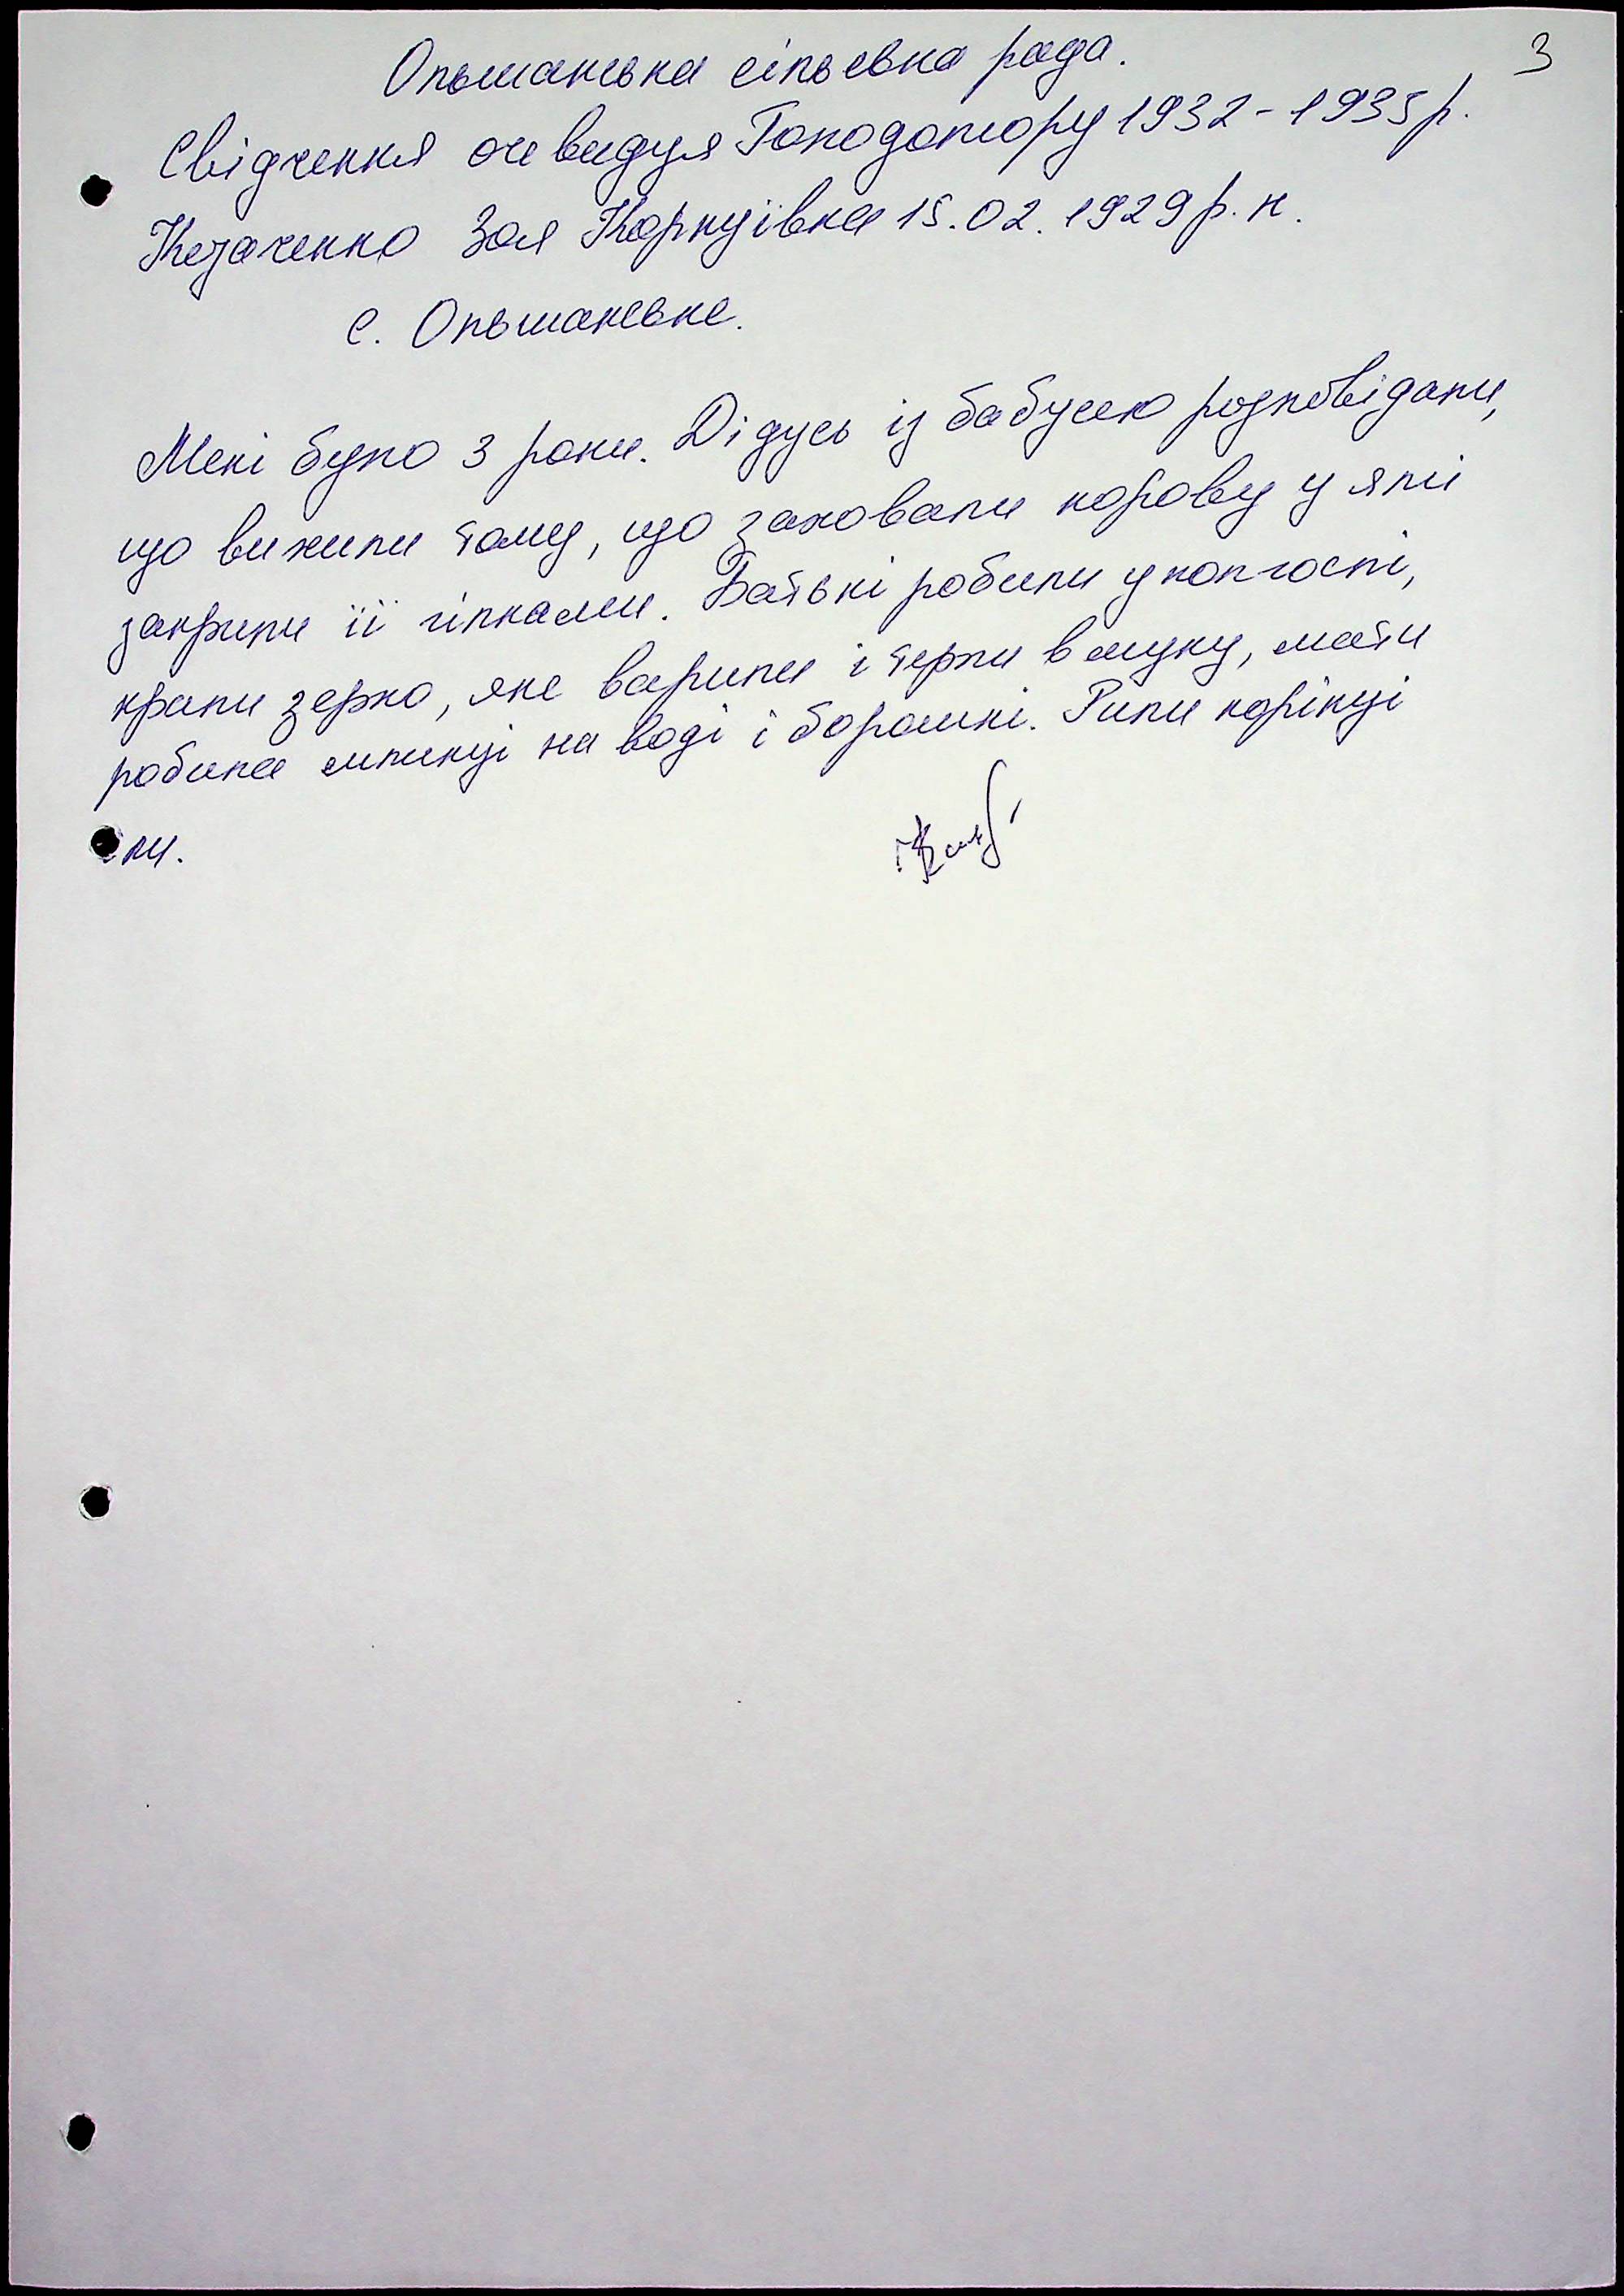 3
Ольшанська сільська рада.
Свідчення очевидця Голодомору 1932-1935р.
Казаченко Зоя Корніївна 15.02.1929р.н.
с. Ольшанське.
Мені було 3 роки. Дідусь із бабусею розповідали,
що вижили тому, що заховали корову у ямі
закрили її гілками. Батькі робили у колгоспі,
крали зерно, яке варили і терли в муку, мати
робила млинці на воді і борошні. Рили корінці
їли.